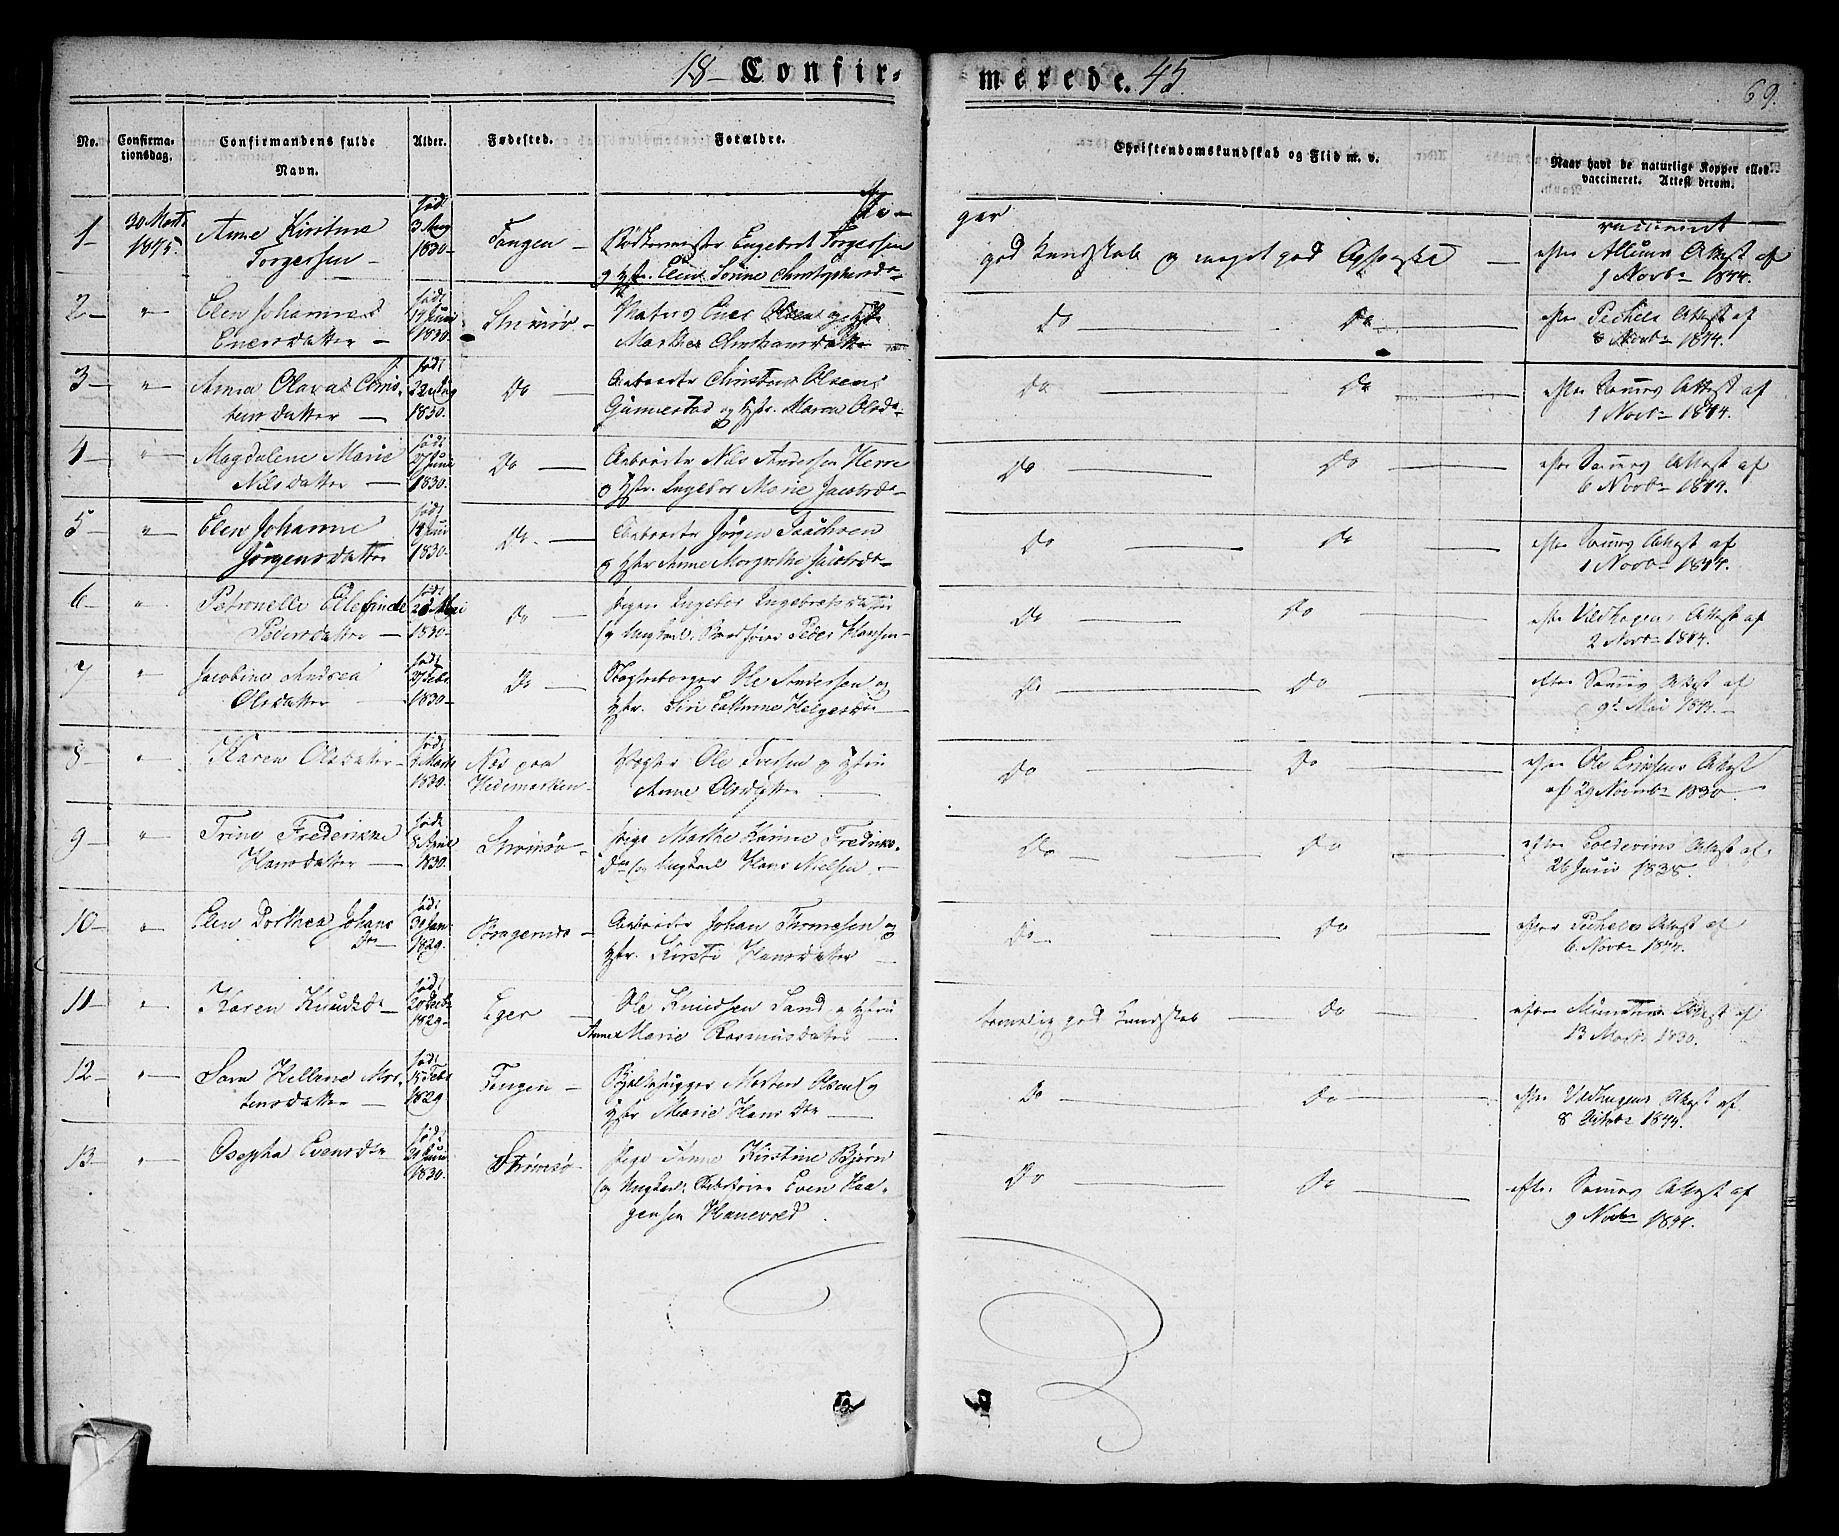 18- Confir-
merede. 45.
69.
No.
Confirma-
tionsdag.
Confirmandens fulde
Navn.
Alder.
Fødested.
Forældre.
Christendomskundskab og Flid m. v.
Naar havt de naturlige Kopper eller
vaccineret. Attest derom.
Pi-
ger
1- 30 Marts
1845.
Anne Kirstine
Torgersen -
fød
3 Aug
1830-
Tangen -
Engebret Torgersen
og Hstr.
god Kundskab og meget god Opførsel
vaccineret
efter Attest af
9 Novbr 1844.
2- "
Elen Johannes
Eversdatter -
født
14 Juni
1830.
Strømsø -
Matros Even Olsen og Hst
Marthea Christiansdatter
Do Do
efter Pihels Attest af
8 Novbr 1844.
3- "
Anna Olava Chris-
tensdatter -
født
22 Aug
1830.
Do -
Arbeider Christen Olsen
Gunnestad og Hstr. Maren Olsda-
Do Do
efter Sammes Attest af
1 Novbr 1844.
4- "
Magdalene Marie
Nilsdatter -
født
27 Juni
1830.
Do -
Arbeider Nils Andersen Herre
og Hstr. Ingebor Marie Jacobsda-
Do Do
efter Sammes Attest af
6 Novbr 1844.
5- "
Elen Johanne
Jørgensdatter
født
14 Juni
1830-
Do. -
Arbeider Jørgen
og Hstr Anne Margrethe Jacobsda-
Do Do
efter Sammes Attest af
1 Novbr 1844.
6- "
Petronelle Ellefine
Pedersdatter -
født
28 Mai
1830-
Do
Pigen Ingebor Ingebretsdatter
og Ungkarl Peder Hansen-
Do Do
efter Vedhagens Attest af
2 Novbr 1844.
7 "
Jacobine Andrea
Olsdatter
født
27 Febr
1830-
Do -
Ole Andersen og
Hstr. Siri Cathrine Helgesdtr
Do Do
efter Sammes Attest af
9de Mai 1844.-
8- "
Karen Olsdatter-
født
Marts
1830-
Næs paa
Hedemarken-
Ole Iversen og Hstru
Anne Olsdatter -
Do Do
efter Ole Eriksens Attest
af 29 Novbr 1830-
9- "
Trine Frederikke
Hansdatter -
født
8 April
1830.
Strømsø -
Pige Marthe Karine Fredriks-
Dtr og Ungkarl Hans Nielsen -
Do Do
efter Attest af
26 Juni 1838.
10- "
Elen Dorthea Johans
Dtr -
født
31 Jan
1829.
Bragernæs-
Arbeider Johan Thomesen og
Hstr. Kirsti Hansdatter -
Do. Do
efter Pihels Attest af
6 Novbr 1844.
11- "
Karen Knudsdtr -
født
1829-
Eger -
Ole Knudsen Sand og Hstru
Anne Marie Rasmusdatter -
temelig god Kundskab - Do
efter Attest af
13 Marts 1830.
12- "
Sara Hellene Mor-
tensdatter -
født
15 Febr
1829
Tangen -
Morten Olsen og
Hstr Marie Hansdtr -
Do Do
efter Vedhagens Attest af
8 Octobr 1844.
13- "
Osepha Evensdtr
født
21 Juni
1830.
Strømsø-
Pige Anne Kirstine Bjørn
og Ungkarl Even Haa-
gensen Hanevold.
Do Do
efter Sammes Attest af
9 Novbr 1844.